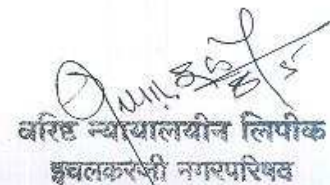 वरिष्ठ न्यायालयीन लिपीक
इचलकरंजी नगरपरिषद